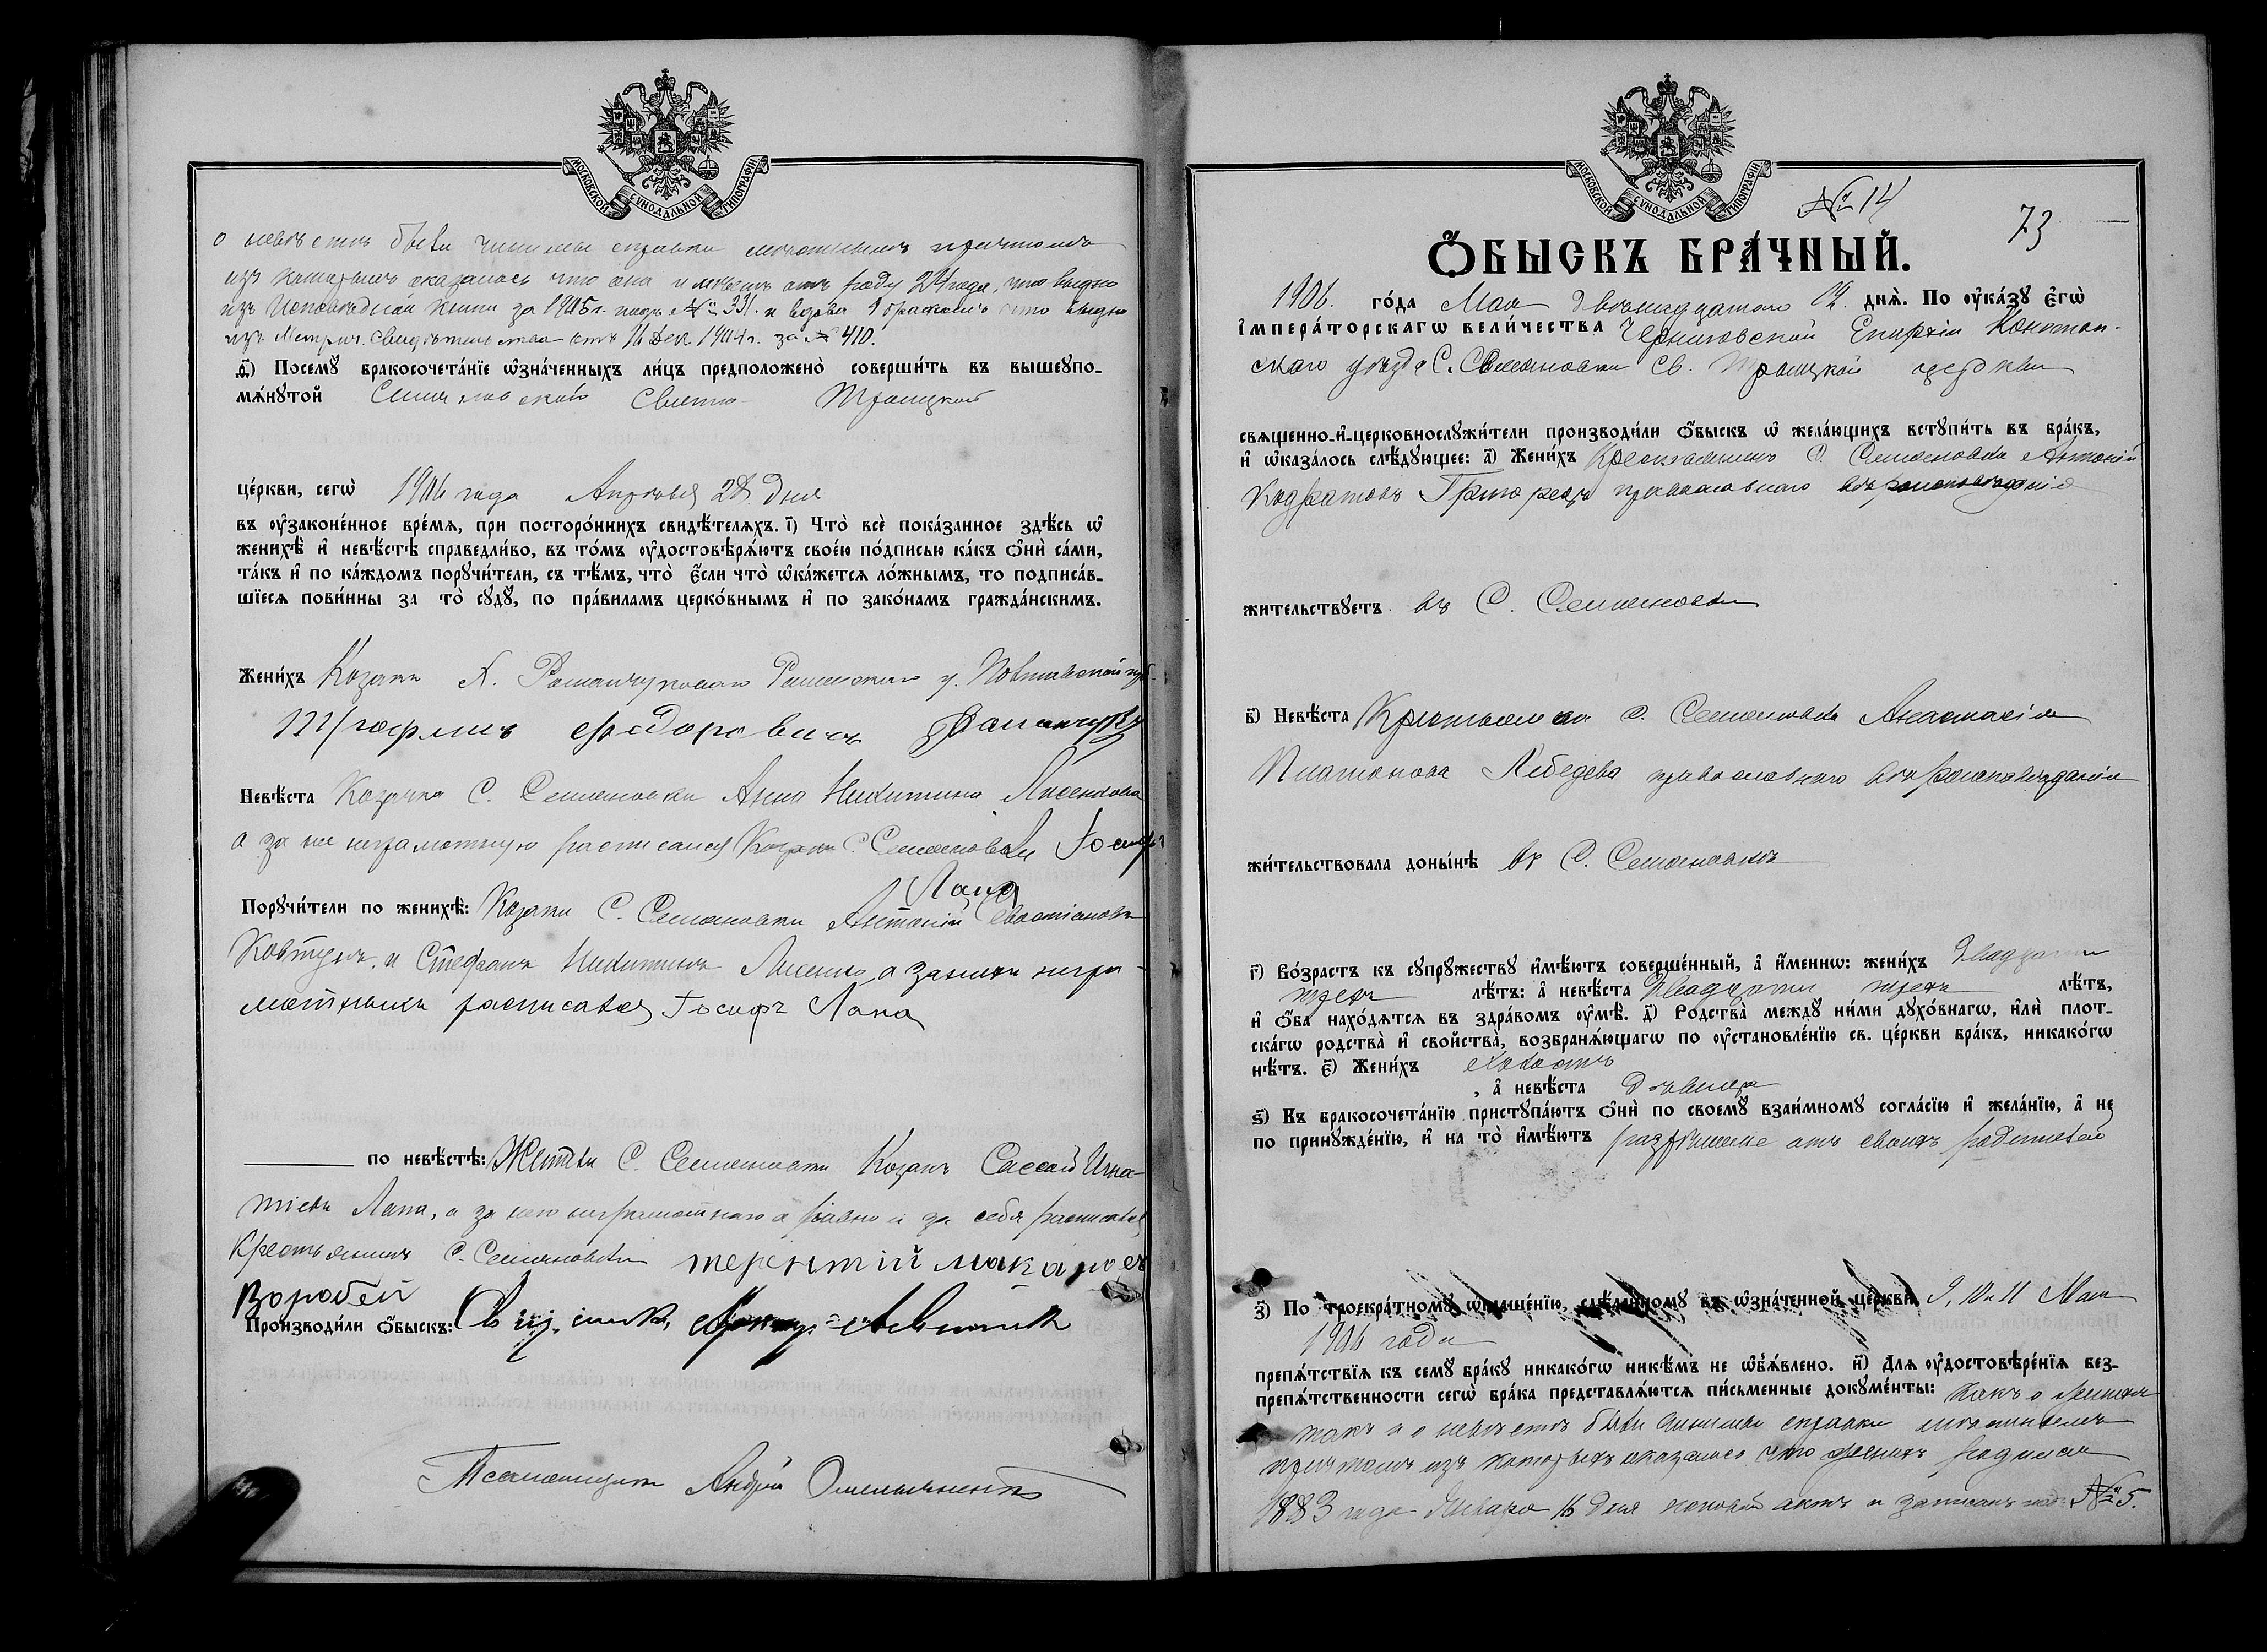 МОСКОВСКОЙ СѴНОДАЛЬНОЙ ТИПОГРАФІИ
о невѣстѣ были чинимы справки мѣстнымъ причтомъ
изъ которыхъ оказалось что она имѣетъ отъ роду 24 года, что видно
изъ Исповѣдной книги за 1905 г. подъ № 331. и вдова 1 бракомъ что видно
изъ Метрич. свидѣтельства отъ 16 Дек 1904 г. за № 410.
ѳ҃) Посемꙋ̀ бракосочета́нїе ѡ҆зна́ченныхъ ли́цъ предположено̀ соверши́ть въ вышеꙋпо-
мѧ́нꙋтой Семяновской Свято- Троицкой
це́ркви, сегѡ̀ 1906 года Апрѣля 28 дня
въ ᲂу҆законе́нное вре́мѧ, при посторо́ннихъ свидѣ́телѧхъ. і҃) Что̀ всѐ пока́занное здѣ́сь ѡ҆
женихѣ̀ и҆ невѣ́стѣ справедли́во, въ то́мъ ᲂу҆достовѣрѧ́ютъ свое́ю по́дписью ка́къ ѻ҆нѝ са́ми,
та́къ и҆ по ка́ждомъ порꙋчи́тели, съ тѣ́мъ, что̀ є҆́сли что̀ ѡ҆ка́жетсѧ ло́жнымъ, то подписа́в-
шїесѧ пови́нны за то̀ сꙋдꙋ̀, по пра́виламъ церко́внымъ и҆ по зако́намъ гражда́нскимъ.
Жени́хъ Козакъ Х. Роменскаго у. Полтавской губ.
Трофимъ Романчукъ
Невѣ́ста Козачка С. Семяновки Анна Никитина Лисенкова
а за нее неграмотную росписался Козакъ С. Семяновки Іосифъ
Лапа
Порꙋчи́тели по женихѣ̀: Козаки С. Семяновки Антоній Севастіановъ
Ковтунъ, и Стефанъ Никитинъ Лисенко, а за нихъ негра-
мотныхъ росписался Іосифъ Лапа
по невѣ́стѣ: Жители С. Семяновки Козакъ Савва Игна-
тіевъ Лапа, а за него неграмотнаго а равно и за себя росписался
Крестьянинъ С. Семяновки терентій макаров
Воробей
Производи́ли ѻ҆́быскъ: Священникъ
Псаломщикъ Андрей Омельяненко
МОСКОВСКОЙ СѴНОДАЛЬНОЙ ТИПОГРАФІИ
№ 14
73
Ѻ҆́БЫСКЪ БРА́ЧНЫЙ.
1906. го́да Мая двѣнадцатого 12. днѧ̀. По ᲂу҆ка́зꙋ Є҆гѡ̀
і҆мпера́торскагѡ вели́чества Черниговской Епархіи Конотоп-
скаго уѣзда С. Семяновки Св. Троицкой церкви
свѧще́нно-и҆-церковнослꙋжи́тели производи́ли ѻ҆́быскъ ѡ҆ жела́ющихъ встꙋпи́ть въ бра́къ,
и҆ ѡ҆каза́лось слѣ́дꙋющее: а҃) Жени́хъ Крестьянинъ С. Семяновки Антоній
Кодратовъ православнаго вѣроисповѣданія
жи́тельствꙋетъ въ С. Семяновки
в҃) Невѣ́ста Крестьянка С. Семяновки Анастасія
Платонова Лебедева православнаго вѣроисповѣданія
жи́тельствовала доны́нѣ въ С. Семяновкѣ
г҃) Во́зрастъ къ сꙋпрꙋ́жествꙋ и҆мѣ́ютъ соверше́нный, а҆ и҆́меннѡ: жени́хъ двадцати
трехъ лѣ́тъ: а҆ невѣ́ста двадцати трехъ лѣ́тъ,
и҆ ѻ҆́ба нахо́дѧтсѧ въ здра́вомъ ᲂу҆мѣ̀. д҃) Родства̀ междꙋ̀ ни́ми дꙋхо́внагѡ, и҆лѝ плот-
ска́гѡ родства̀ и҆ свойства̀, возбранѧ́ющагѡ по ᲂу҆становле́нїю св. це́ркви бра́къ, никако́гѡ
нѣ́тъ. є҃) Жени́хъ холостъ
, а҆ невѣ́ста дѣвица
ѕ҃) Въ бракосочета́нїю пристꙋпа́ютъ ѻ҆нѝ по своемꙋ̀ взаи́мномꙋ согла́сїю и҆ жела́нїю, а҆ не
по принꙋжде́нїю, и҆ на то̀ и҆мѣ́ютъ разрѣшеніе отъ своихъ родителей
з҃) По троекра́тномꙋ ѡ҆глаше́нїю, сдѣ́ланномꙋ въ ѡ҆зна́ченной це́ркви 9, 10 и 11 Мая
1906 года
препѧ́тствїѧ къ семꙋ̀ бра́кꙋ никако́гѡ никѣ́мъ не ѡ҆б̾ѧ́влено. и҃) Длѧ ᲂу҆достовѣре́нїѧ без-
препѧ́тственности сегѡ̀ бра́ка представлѧ́ютсѧ пи́сьменные докꙋме́нты: какъ о женихѣ
такъ и о невѣстѣ были чинимы справки мѣстнымъ
причтомъ изъ которыхъ оказалось что женихъ родился
1883 года Января 16 дня каковой актъ и записанъ под № 5.